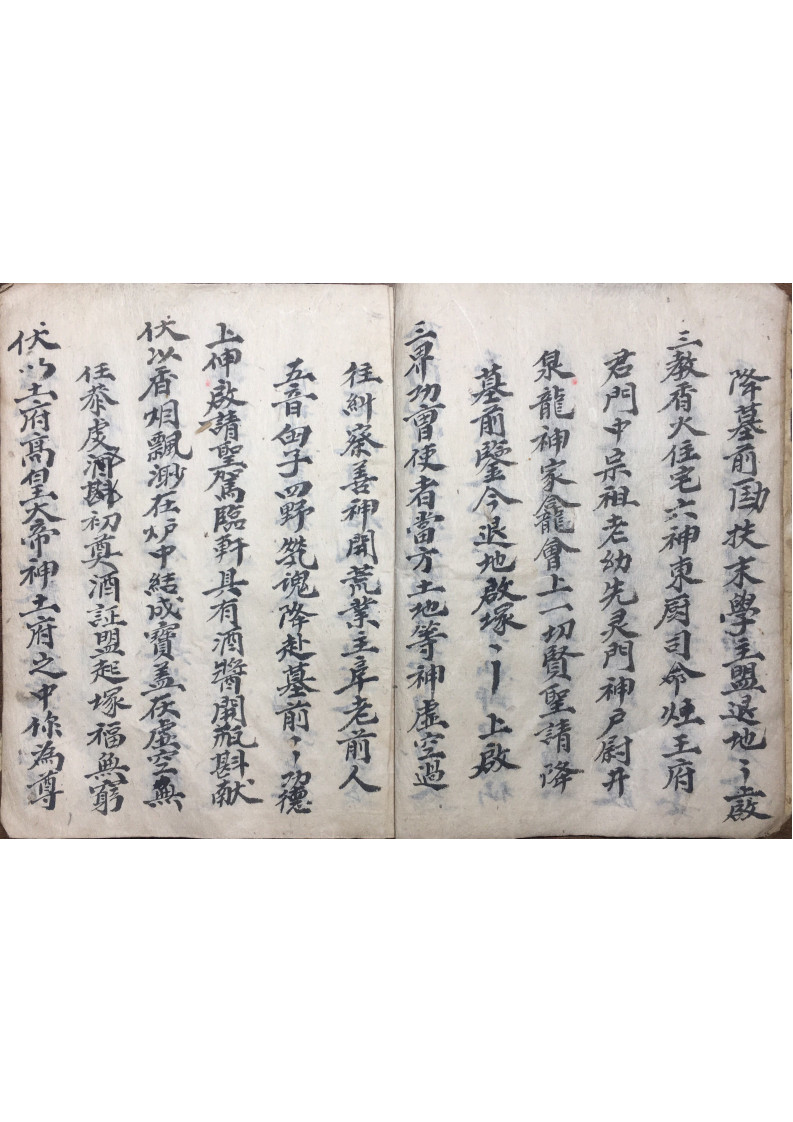 降墓前匡扶末學主盟退地〻上啟
三教香火住宅六神東厨司命灶王府
君門中宗祖老幼先灵門神户尉井
泉龍神家龕會上一切賢聖請降
墓前鑒今退地啟塚〻 上啟
三界功曹使者當方土地等神虛空過
往糾察善神開荒業主阜老前人
五音 子四野 魂降赴墓前〻功德
上伸啟請聖駕臨軒具有酒醬開瓶斟献
伏以香烟飄渺在炉中結成寶盖在虛空無
任恭虔 初奠酒証盟起塚福無窮
伏以土府高皇大帝神土府之中称為尊